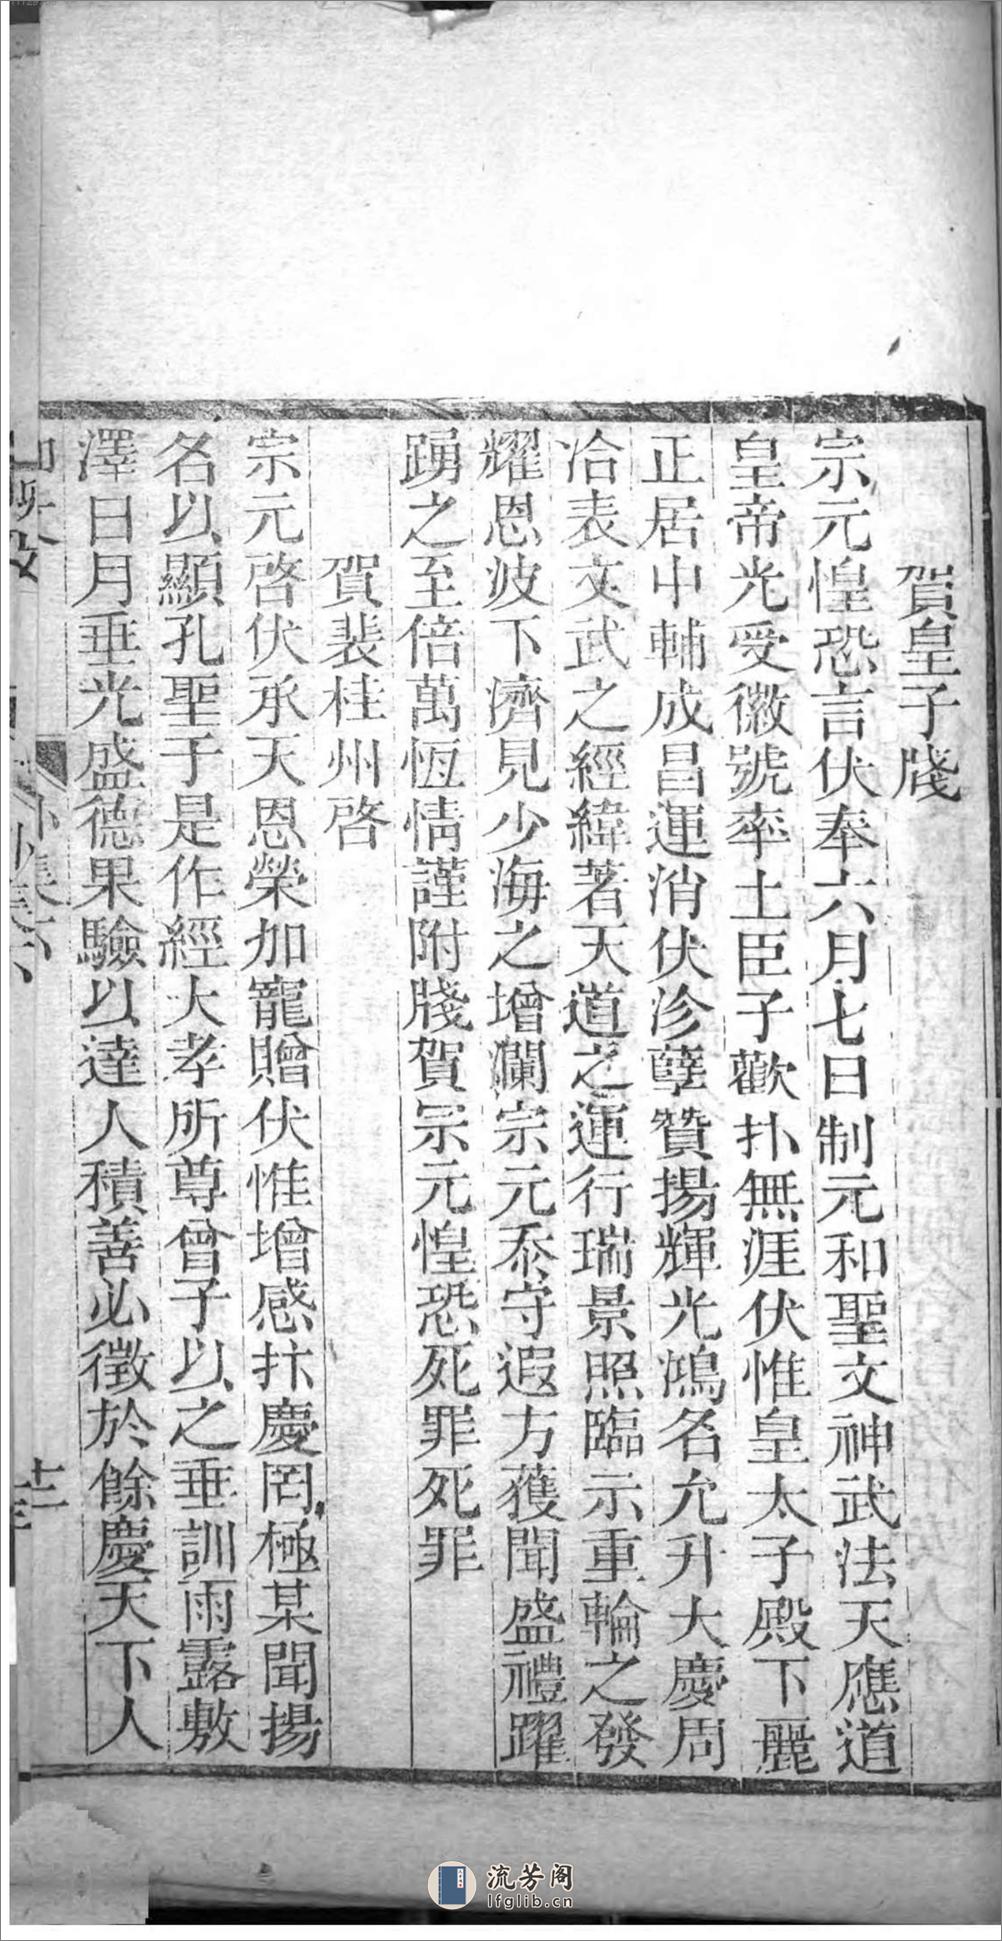 賀皇子牋
宗元惶恐言伏奉六月七日制元和聖文神武法天應道
皇帝光受徽號率土臣子歡抃無涯伏惟皇太子殿下麗
正居中輔成昌運消伏沴孽贊揚輝光鴻名允升大慶周
洽表文武之經緯著天道之運行瑞景照臨示重輪之發
耀恩波下濟見少海之增瀾宗元忝守遐方獲聞盛禮躍
踴之至倍萬恆情謹附牋賀宗元惶恐死罪死罪
賀裴桂州啓
宗元啓伏承天恩榮加寵贈伏惟增感抃慶罔極某聞揚
名以顯孔聖于是作經大孝所尊曾子以之垂訓雨露敷
澤日月垂光盛德果驗以達人積善必徵於餘慶天下人
流芳阁
lfglib.cn